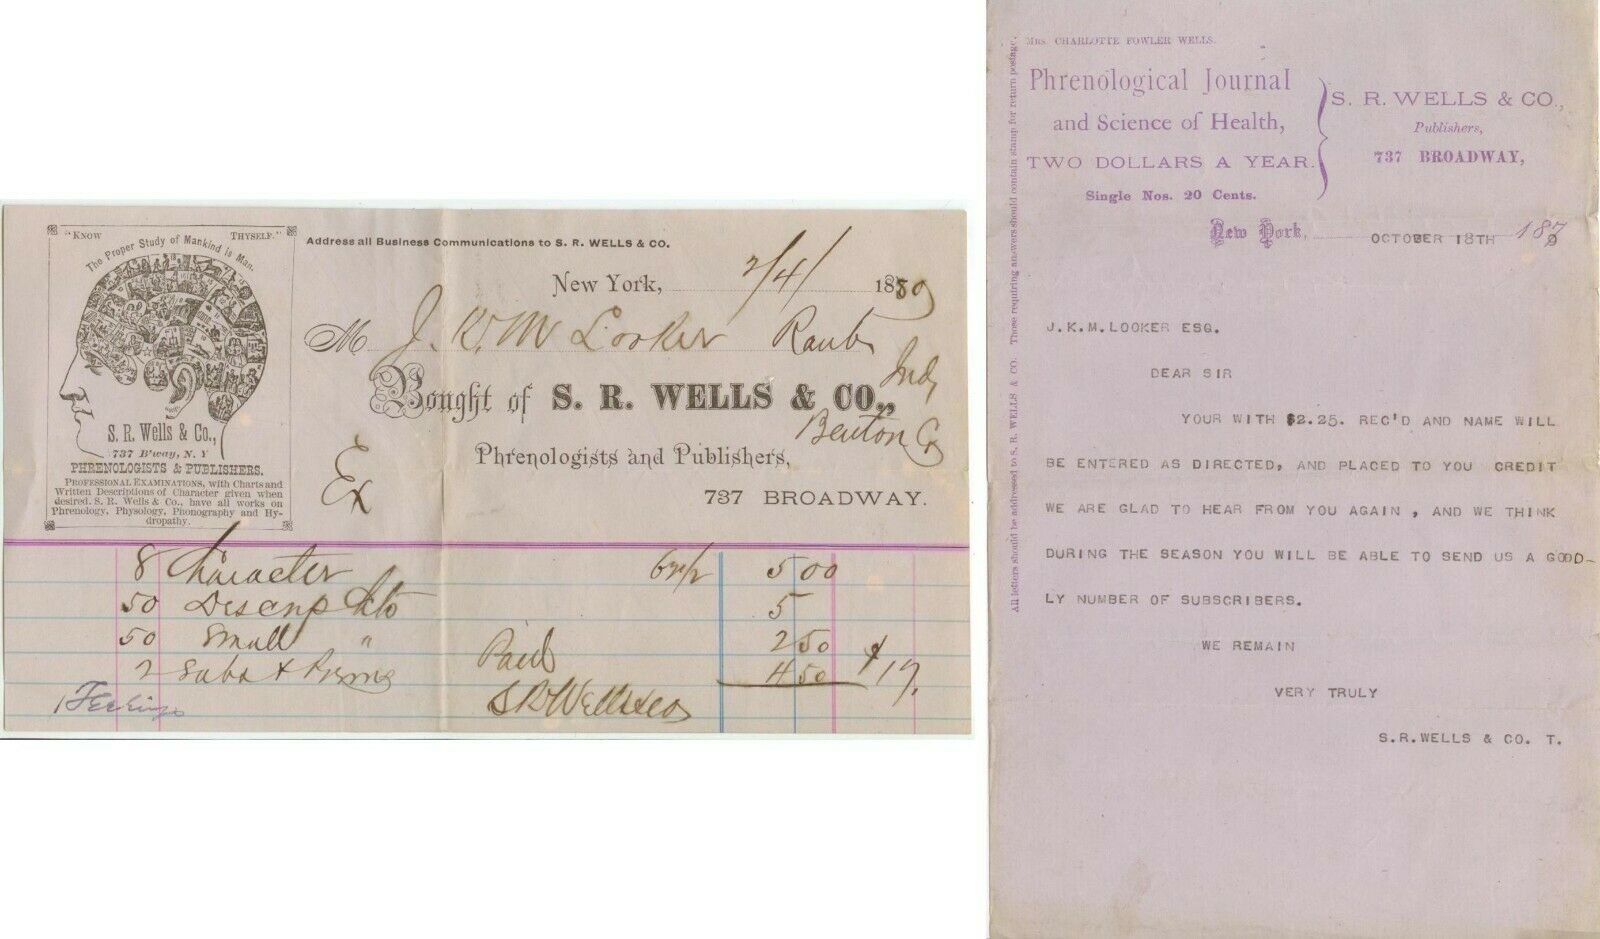 "KNOW THYSELF."
The Proper Study of Mankind is Man.
S. R. Wells & Co.,
737 B'way, N. Y
PHRENOLOGISTS & PUBLISHERS.
PROFESSIONAL EXAMINATIONS, with Charts and
Written Descriptions of Character given when
desired. S. R. Wells & Co., have all works on
Phrenology, Physology, Phonography and Hy-
dropathy.
Address all Business Communications to S. R. WELLS & CO.
New York, 2/4/ 1880
M J. K. M Looker Raub
Ind,
Bought of S. R. WELLS & CO.,
Benton Co
Phrenologists and Publishers,
Ex
737 BROADWAY.
8 Character 5 00
50 Descrip 5
50 Small " 2 50
2 Subs & Prems 4 50 $17.
Paid
S R Wells & Co
MRS. CHARLOTTE FOWLER WELLS.
Phrenological Journal
and Science of Health,
TWO DOLLARS A YEAR.
Single Nos. 20 Cents.
S. R. WELLS & CO.,
Publishers,
737 BROADWAY,
New York, OCTOBER 18TH 1879
All letters should be addressed to S. R. WELLS & CO. Those requiring answers should contain stamp for return postage.
J.K.M.LOOKER ESQ.
DEAR SIR
YOUR WITH $2.25. REC'D AND NAME WILL
BE ENTERED AS DIRECTED, AND PLACED TO YOU CREDIT
WE ARE GLAD TO HEAR FROM YOU AGAIN , AND WE THINK
DURING THE SEASON YOU WILL BE ABLE TO SEND US A GOOD-
LY NUMBER OF SUBSCRIBERS.
WE REMAIN
VERY TRULY
S.R.WELLS & CO. T.